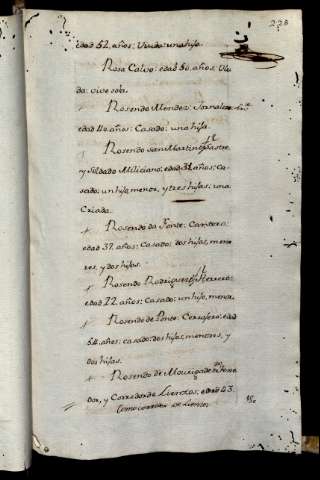 228
edad 52. años: Viuda: una hija.
Rosa Calvo: edad 50. años: Viu-
da: vive sola.
Rosendo Mendez Jornalero:
edad 40. años: Casado: una hija.
Rosendo San Martin Sastre,
y Soldado Miliciano: edad 34 años: ca-
sado: un hijo, menor, y tres hijas: una
Criada.
+ Rosendo da Fonte: Cantero:
edad 37. años: Casado: dos hijos, meno-
res, y dos hijas.
+ Rosendo Rodriguez Herrero:
edad 22. años: Casado: un hijo, menor.
+ Rosendo de Ponte: edad
64. años: casado: dos hijos, menores, y
dos hijas.
+ Rosendo de
dor, y Corredor de Lienzos, edad 43.
Como corredor de Lienzos